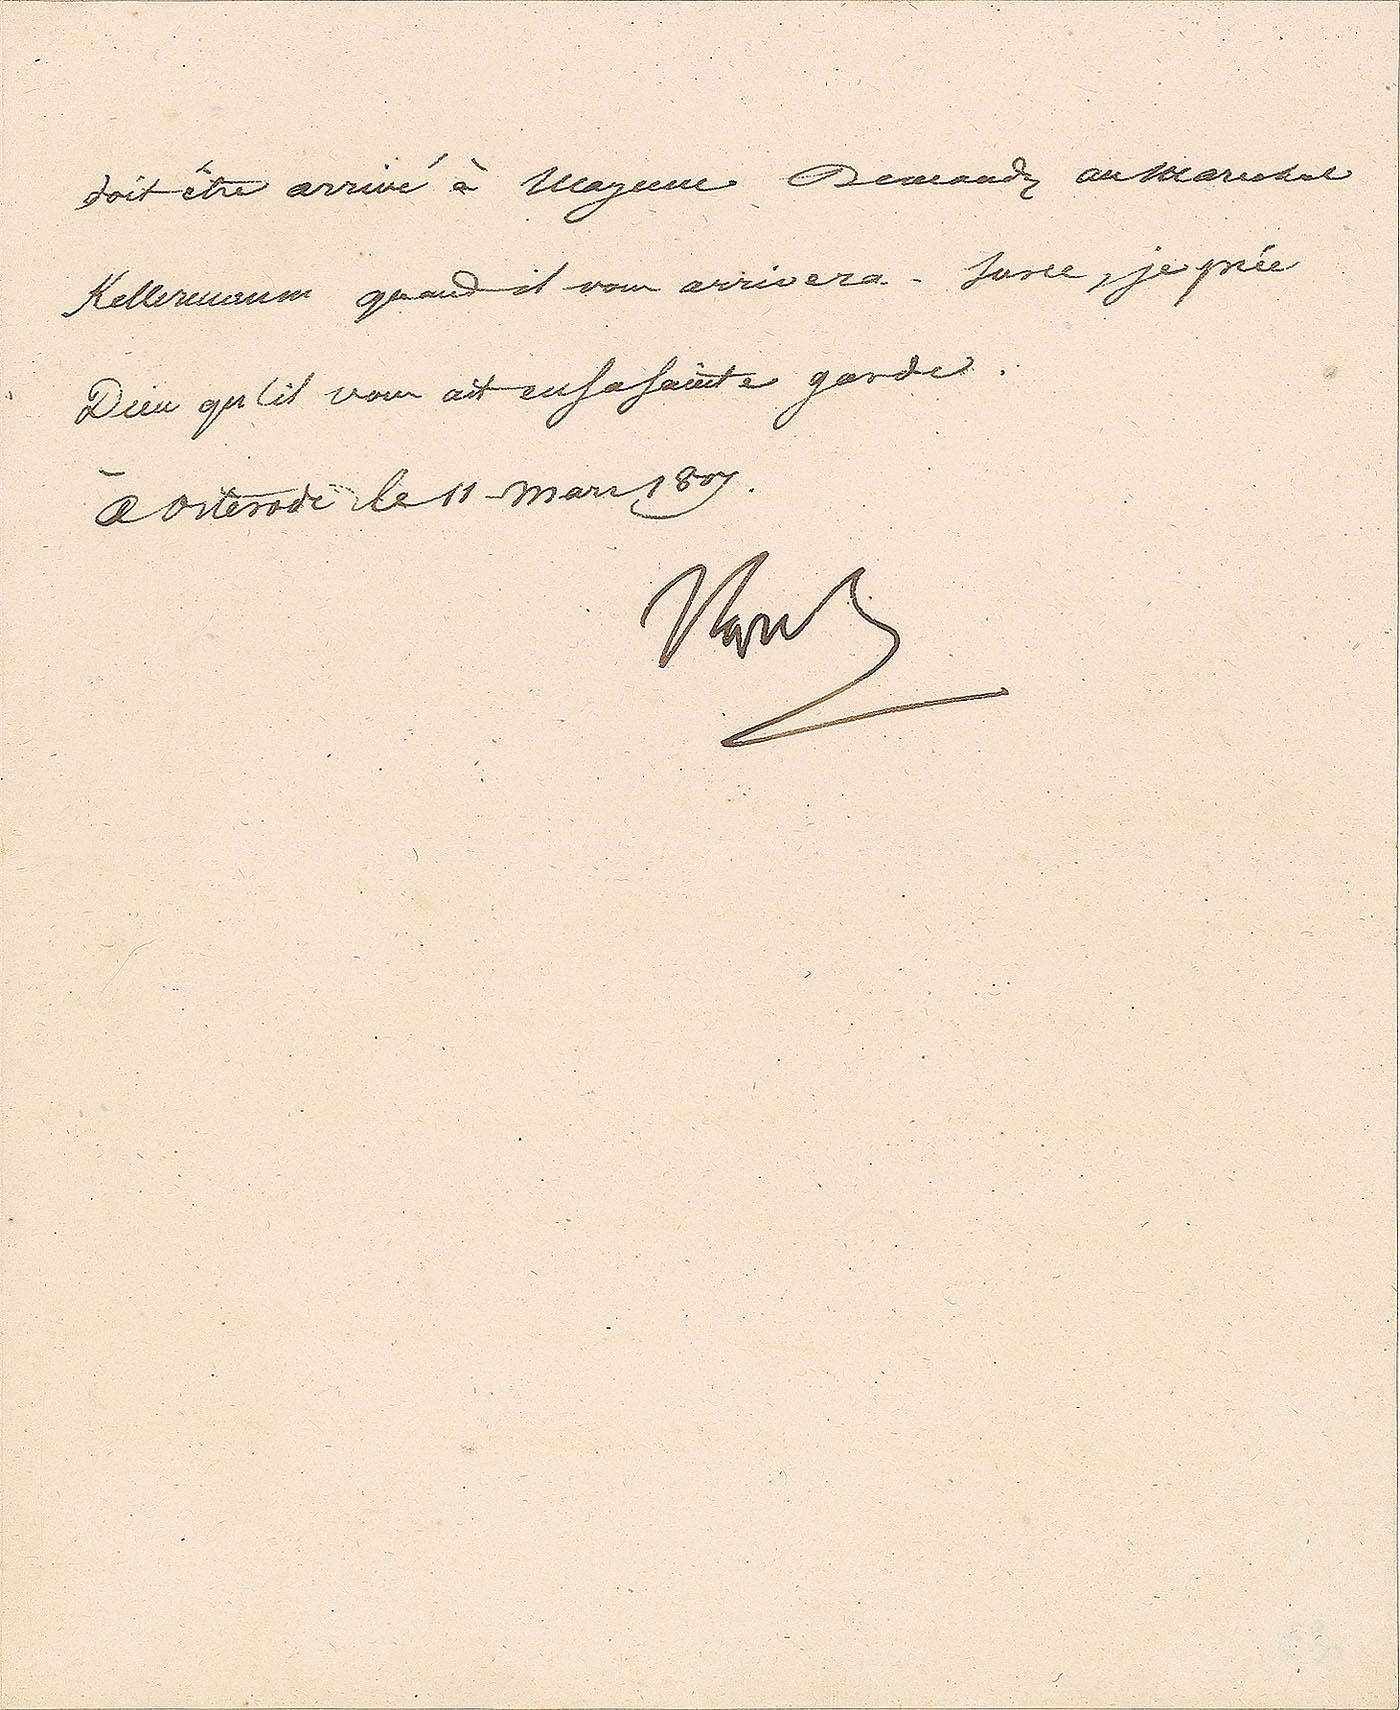 doit être arrivé à Mayence Demandez au Marechal
Kellermann quand il vous arrivera. Surce, je prie
Dieu qu'il vous ait en sa sainte garde.
a Osterode le 11 Mars 1807.